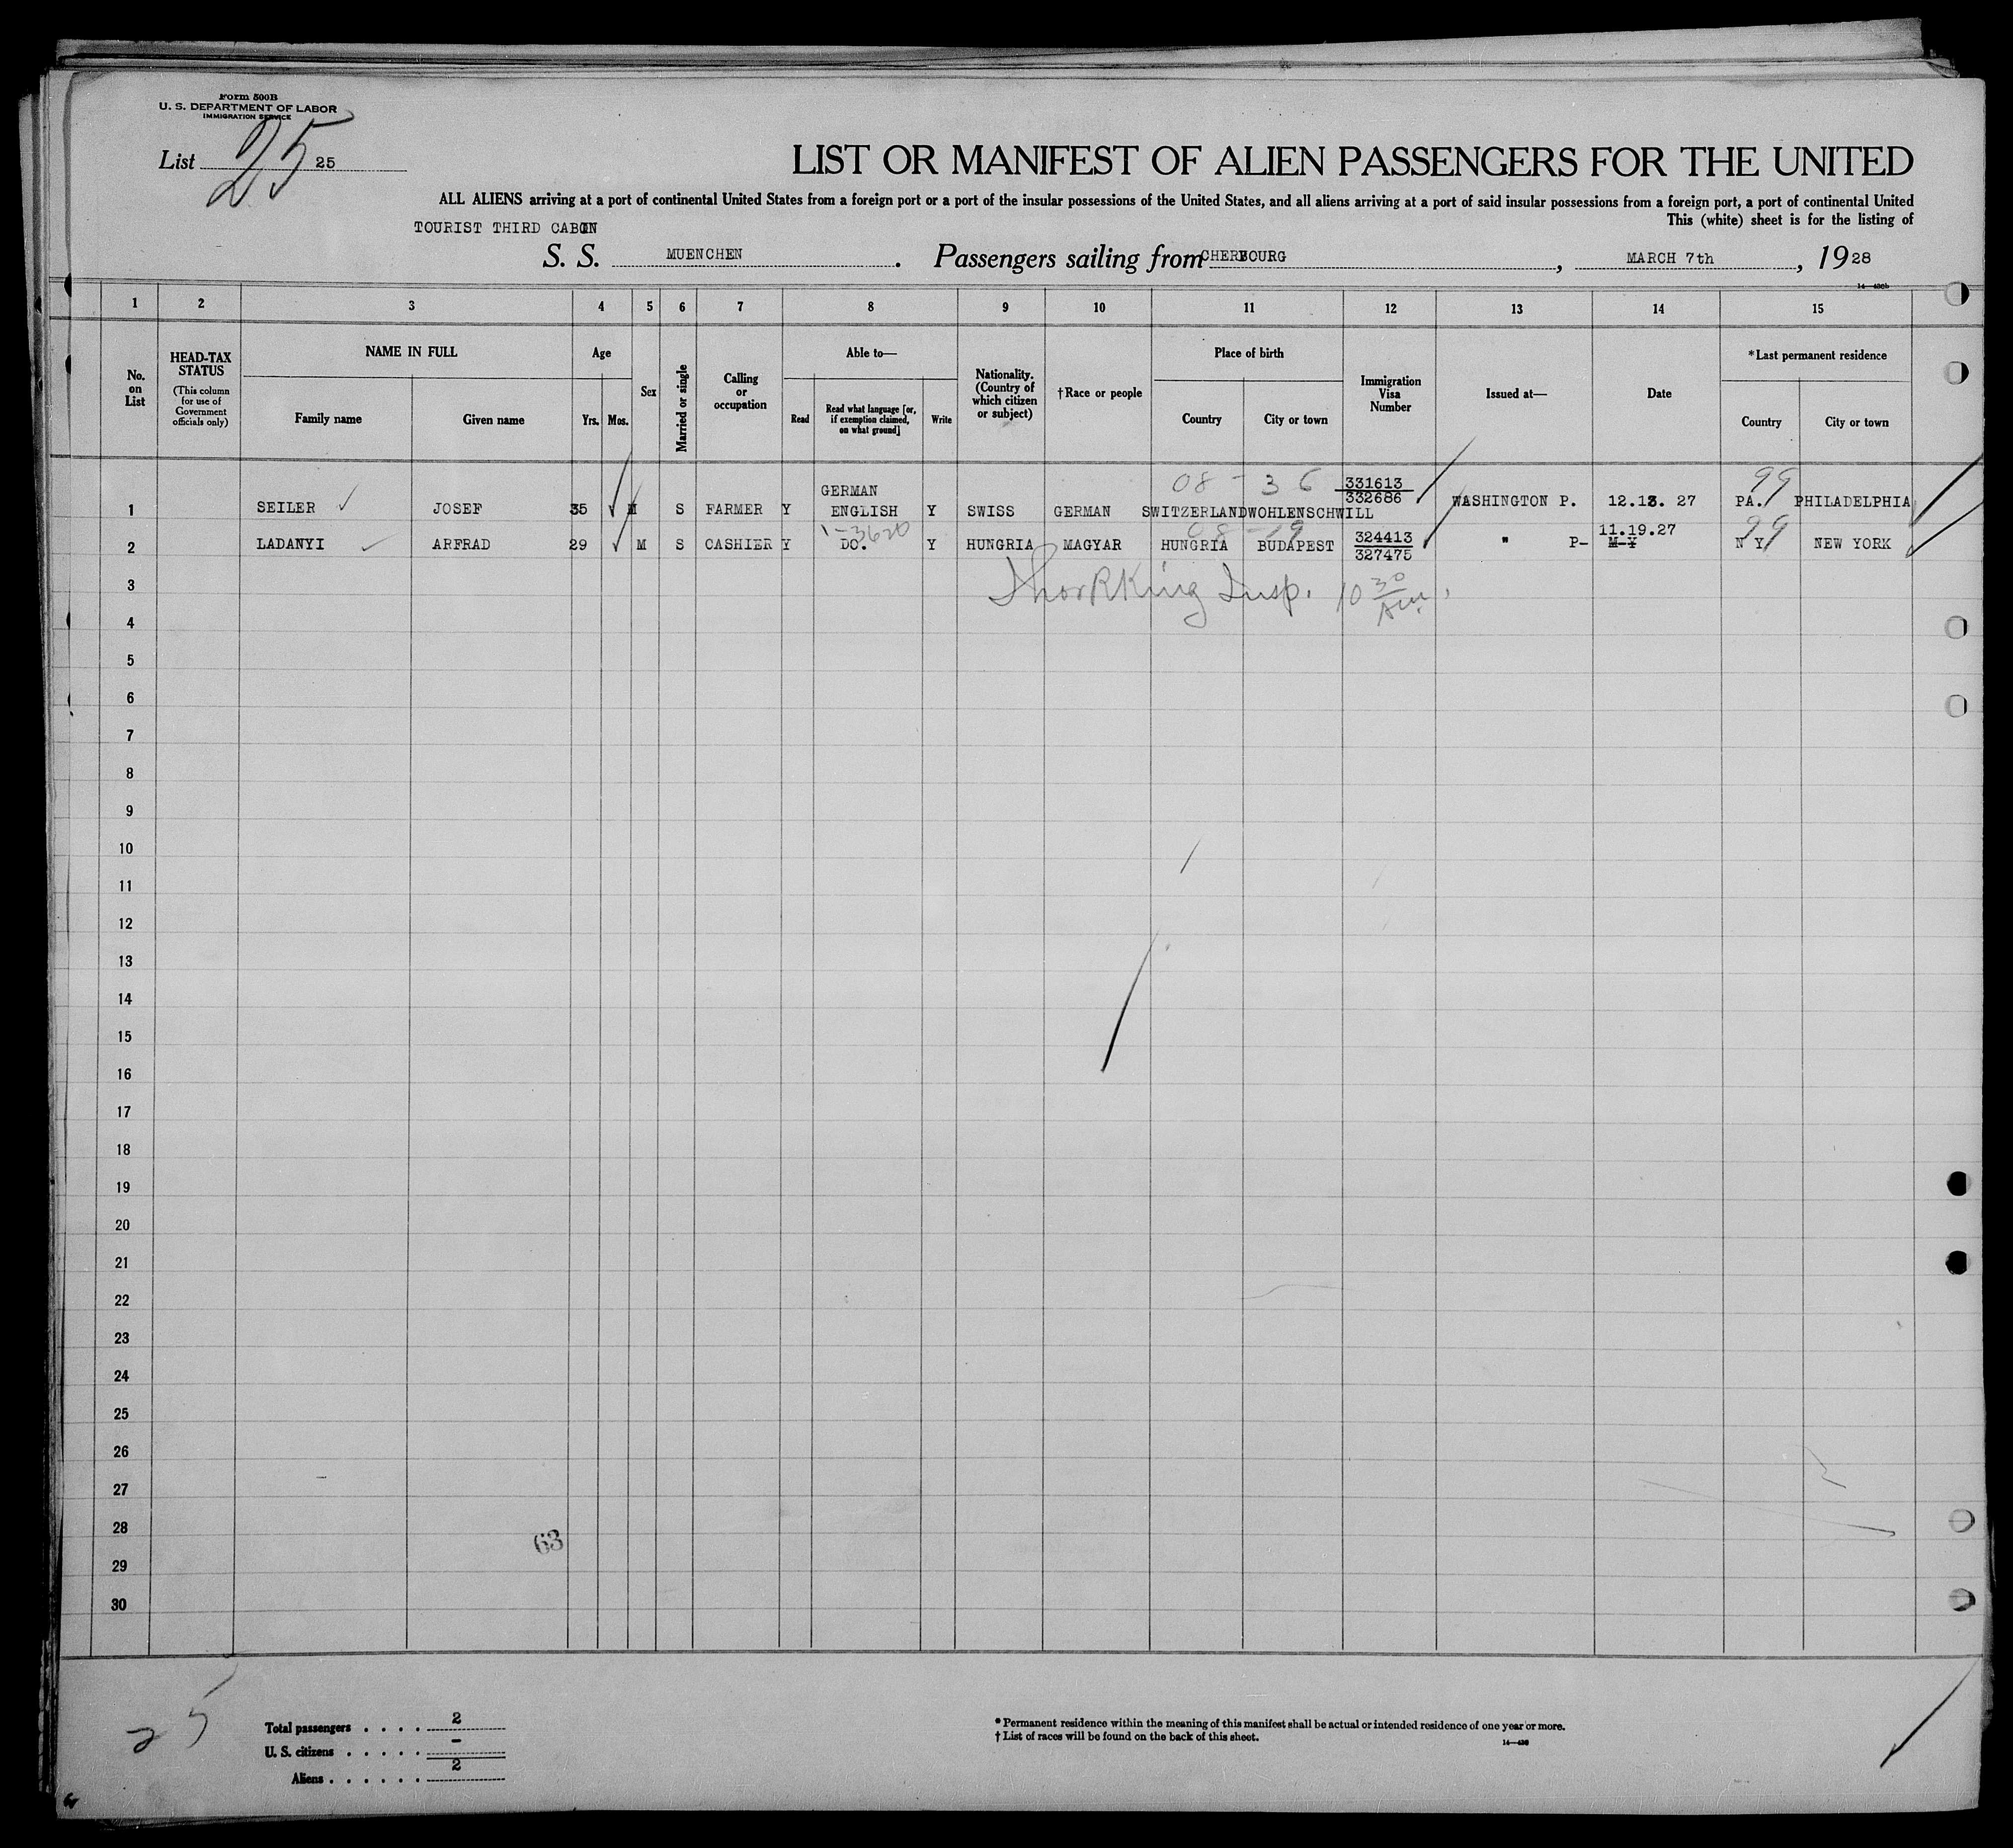 Form 500B
U. S. DEPARTMENT OF LABOR
IMMIGRATION SERVICE
List 25 25
LIST OR MANIFEST OF ALIEN PASSENGERS FOR THE UNITED
ALL ALIENS arriving at a port of continental United States from a foreign port or a port of the insular possessions of the United States, and all aliens arriving at a port of said insular possessions from a foreign port, a port of continental United
This (white) sheet is for the listing of
TOURIST THIRD CABIN
S. S. MUENCHEN. Passengers sailing from CHERBOURG, MARCH 7th, 1928
14—430b
1 2 3 4 5 6 7 8 9 10 11 12 13 14 15
No. on List
HEAD-TAX STATUS
(This column for use of Government officials only)
NAME IN FULL
Family name Given name
Age
Yrs. Mos.
Sex
Married or single
Calling or occupation
Able to—
Read
Read what language [or, if exemption claimed, on what ground]
Write
Nationality. (Country of which citizen or subject)
†Race or people
Place of birth
Country City or town
Immigration Visa Number
Issued at—
Date
*Last permanent residence
Country City or town
08 - 36 99
1 SEILER JOSEF 35 M S FARMER Y GERMAN ENGLISH Y SWISS GERMAN SWITZERLAND WOHLENSCHWILL 331613 332686 WASHINGTON P. 12.13. 27 PA. PHILADELPHIA
1-3620 08-19 99
2 LADANYI ARFRAD 29 M S CASHIER Y DO. Y HUNGRIA MAGYAR HUNGRIA BUDAPEST 324413 327475 " P- 11.19.27 M-Y N Y NEW YORK
3 Insp. 10 30 Am.
4
5
6
7
8
9
10
11
12
13
14
15
16
17
18
19
20
21
22
23
24
25
26
27
28
63
29
30
25
Total passengers . . . . 2
U. S. citizens . . . . . -
Aliens . . . . . . 2
* Permanent residence within the meaning of this manifest shall be actual or intended residence of one year or more.
† List of races will be found on the back of this sheet.
14—430